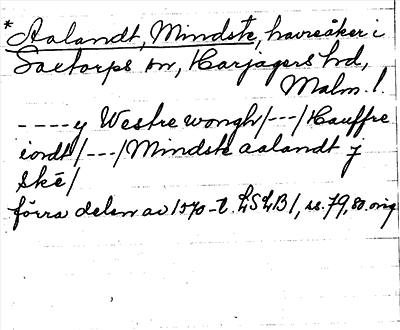 *Aalandt, Mindste, havreåker i
Saxtorps sn, Harjagers hd,
Malm. l.
----y Westre wongh/---/Hauffre
iordt/---/Mindste aalandt j
Skē/
förra delen av 1570-t. LSLB1, ss. 79, 80. orig